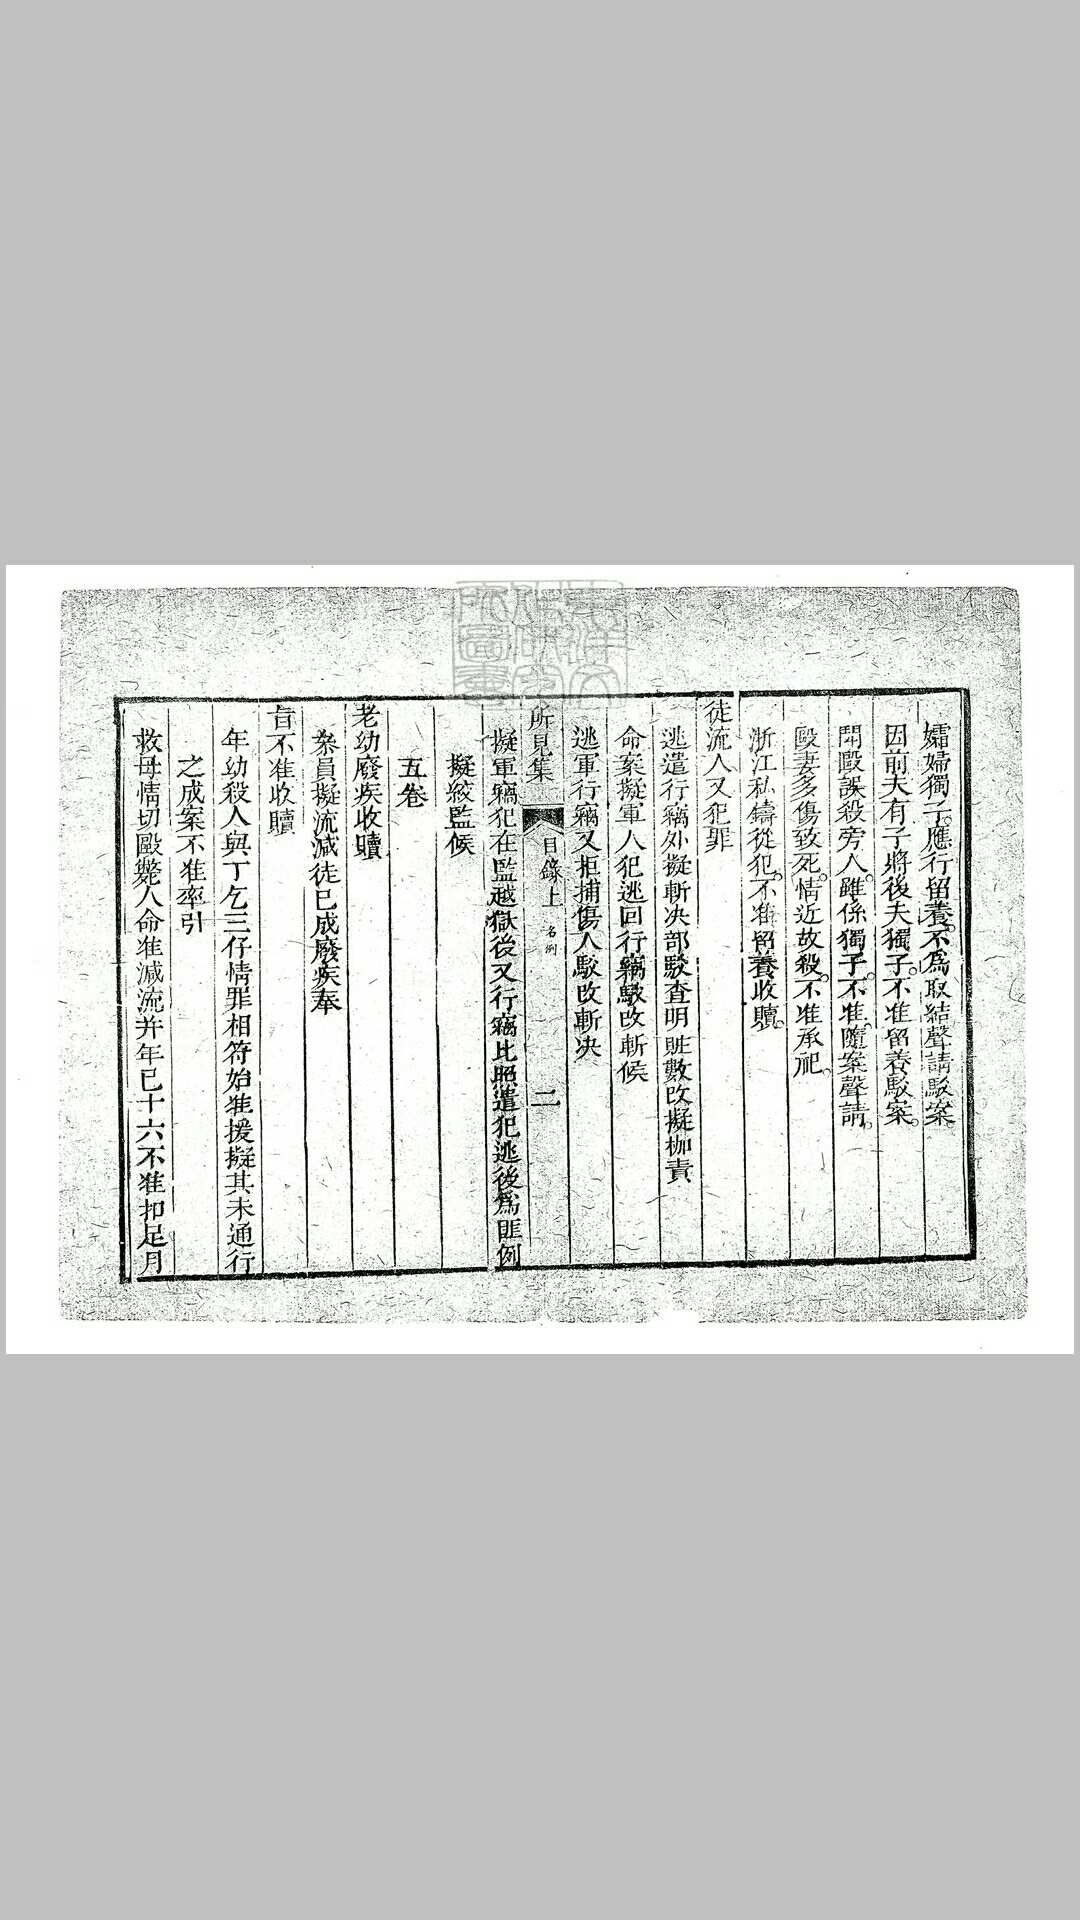 孀婦獨子。應行留養。不爲取結聲請駁案。
因前夫有子將後夫獨子。不准留養駁案。
鬪毆誤殺旁人。雖係獨子。不准隨案聲請。
毆妻多傷致死。情近故殺。不准承祀。
浙江私鑄從犯。不准留養收贖。
徒流人又犯罪
逃遣行竊外擬斬决部駁查明賍數改擬枷責
命案擬軍人犯逃回行竊駁改斬候
逃軍行竊又拒捕傷人駁改斬决
所見集 目錄上 名例 二
擬軍竊犯在監越獄後又行竊比照遣犯逃後爲匪例
擬絞監候
五卷
老幼廢疾收贖
叅員擬流減徒已成廢疾奉
旨不准收贖
年幼殺人與丁乞三仔情罪相符始准援擬其未通行
之成案不准率引
救母情切毆斃人命准減流并年已十六不准扣足月